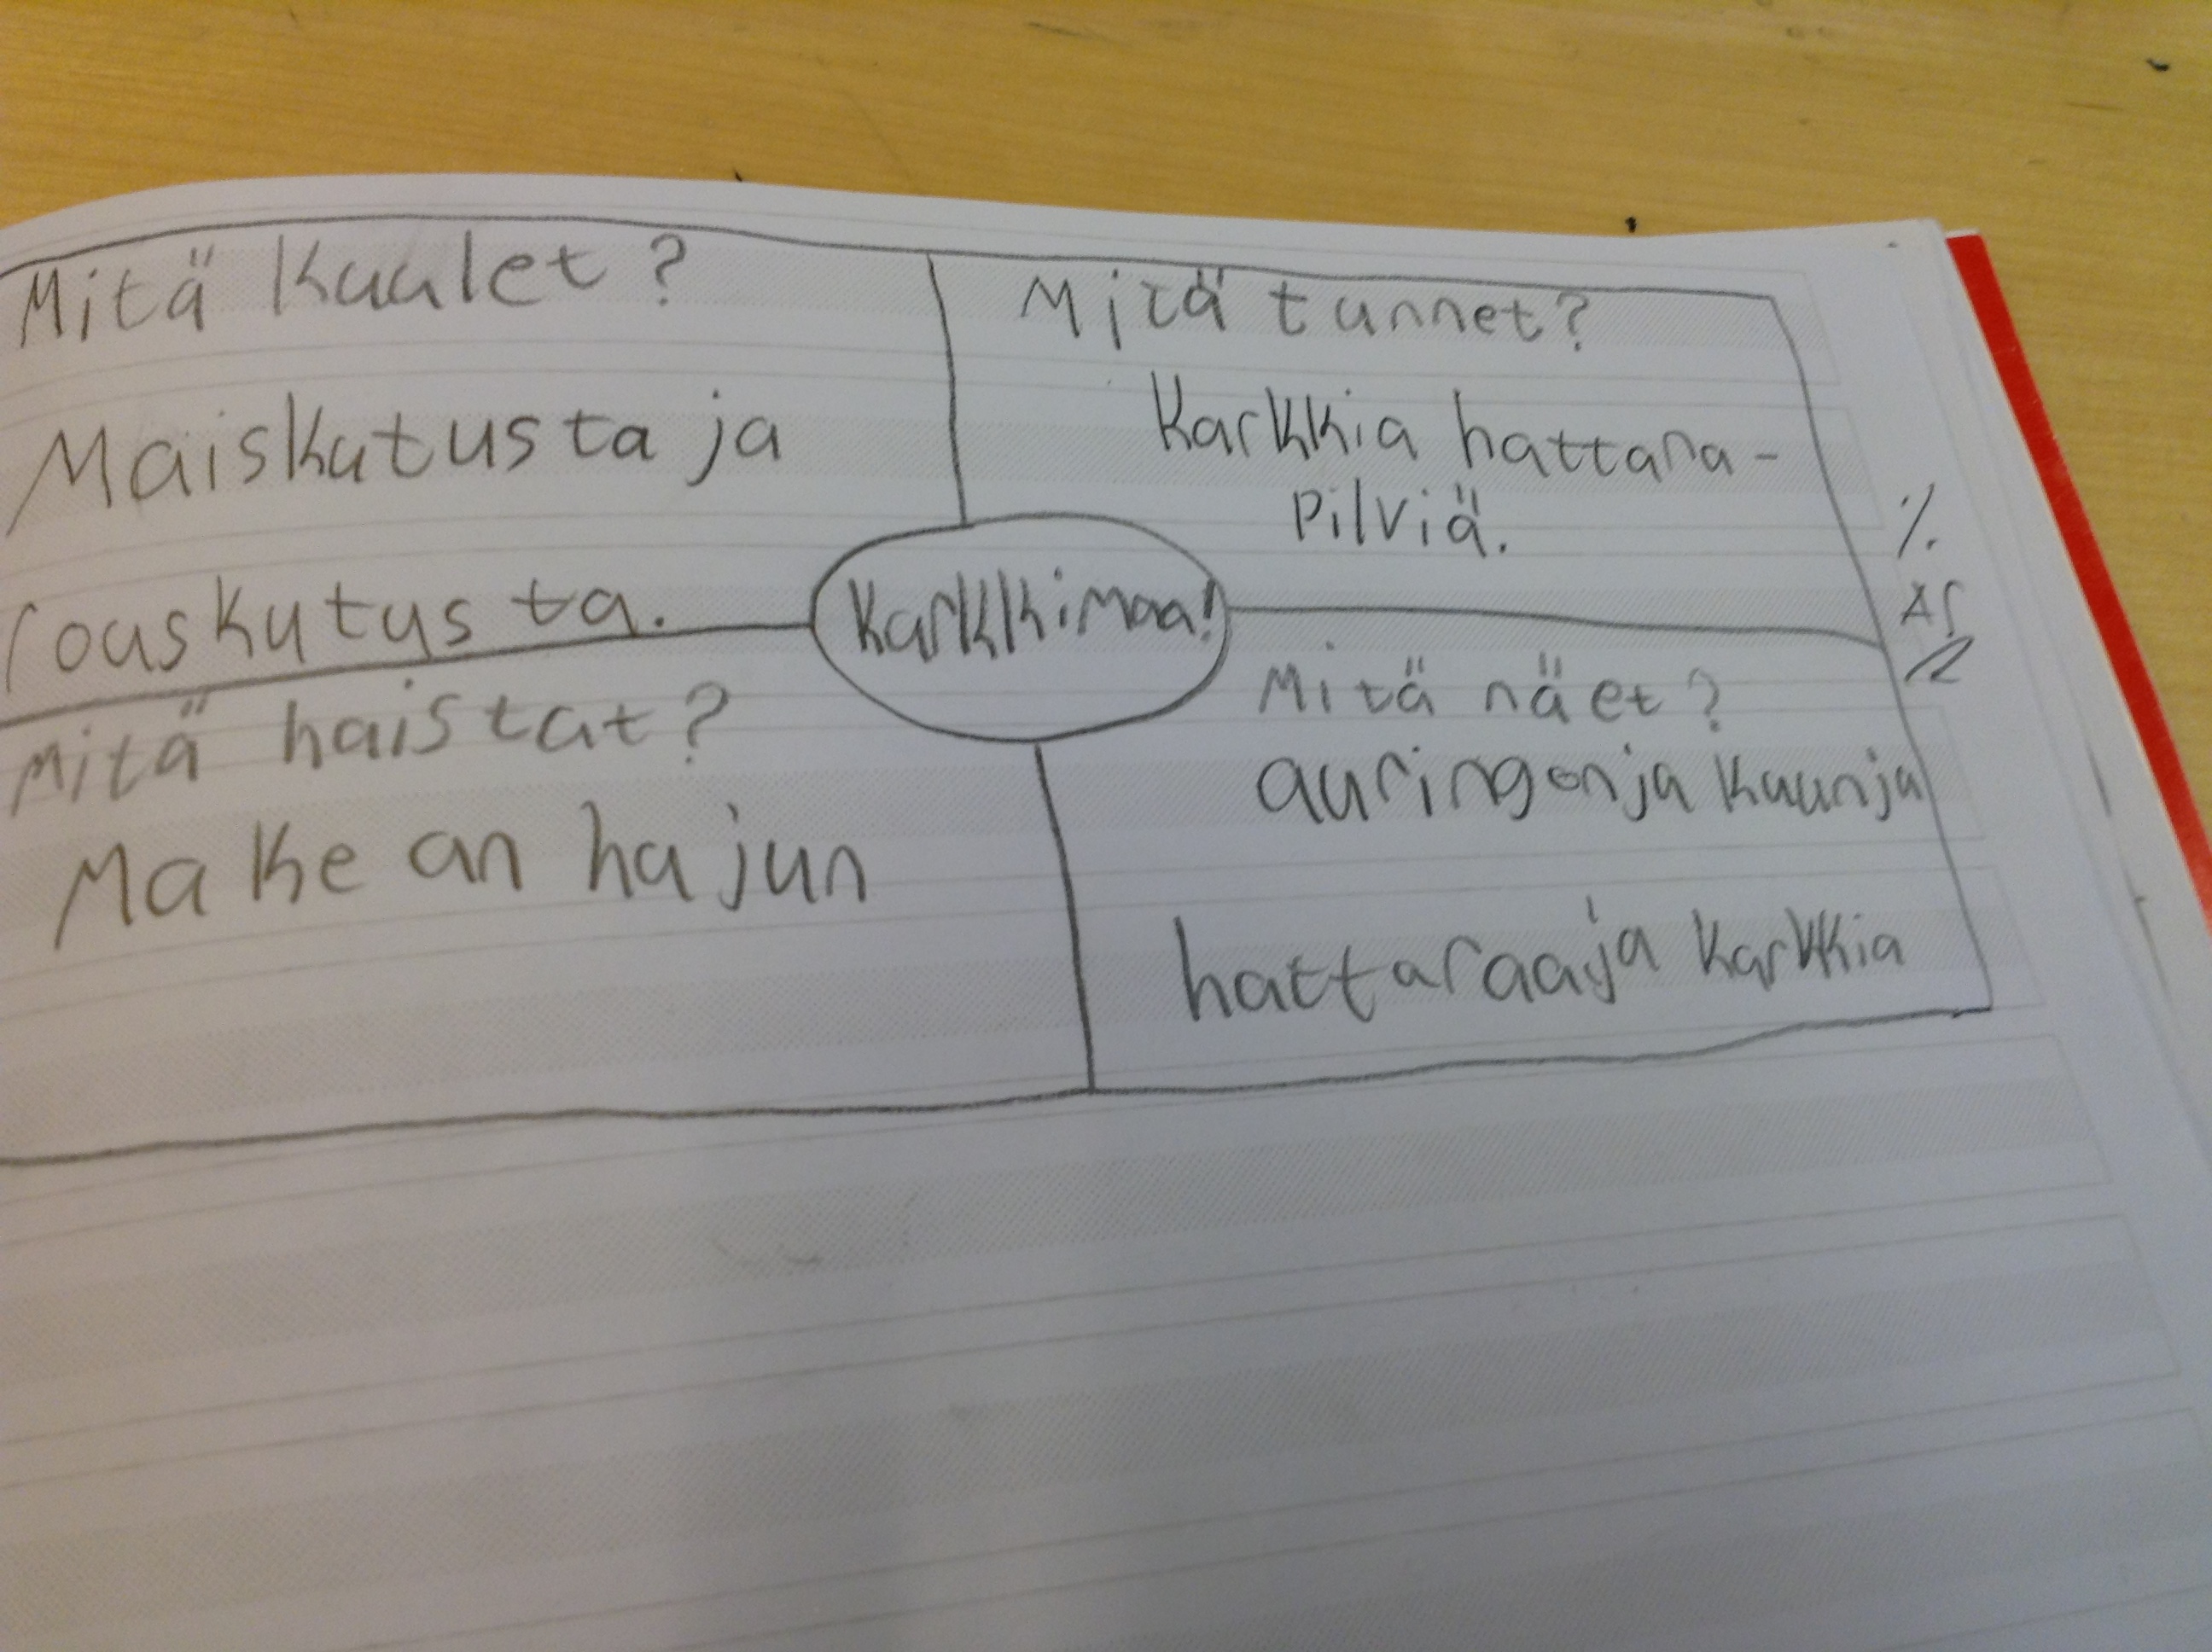 Mitä kuulet?
Maiskutusta ja
rouskutusta.
Mitä tunnet?
Karkkia hattara-
pilviä.
Karkkimaa!
Mitä haistat?
Makean hajun
Mitä näet?
auringon ja kuun ja
hattaraa ja karkkia